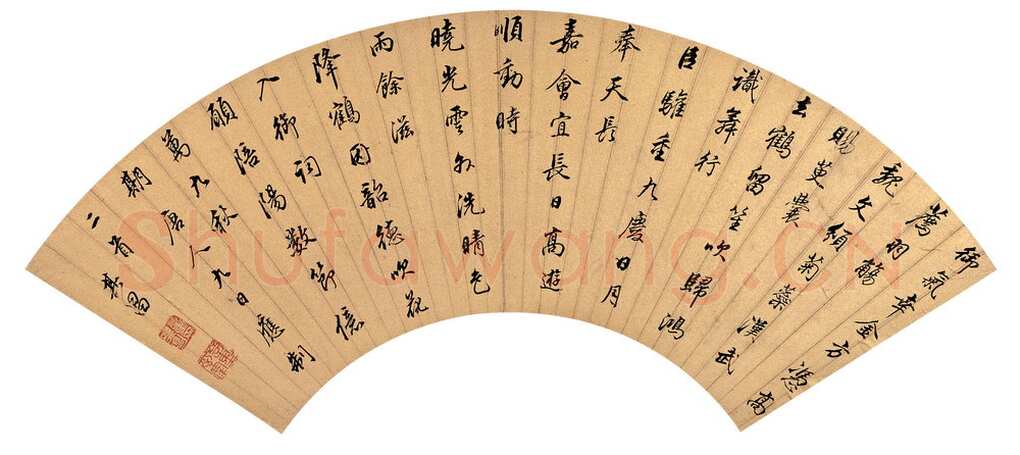 御氣幸金方憑高
薦羽觴
魏文頒菊蘂漢武
賜萸囊
去鶴留笙吹歸鴻
識舞行
臣驩重九慶日月
奉天長
嘉會宜長日高遊
順動時
曉光雲外洗晴色
雨餘滋
降鶴因韶德吹花
入御詞
願陪陽數節億
萬九秋
期 唐人九日應制
二首 其昌
Shufawang.CN